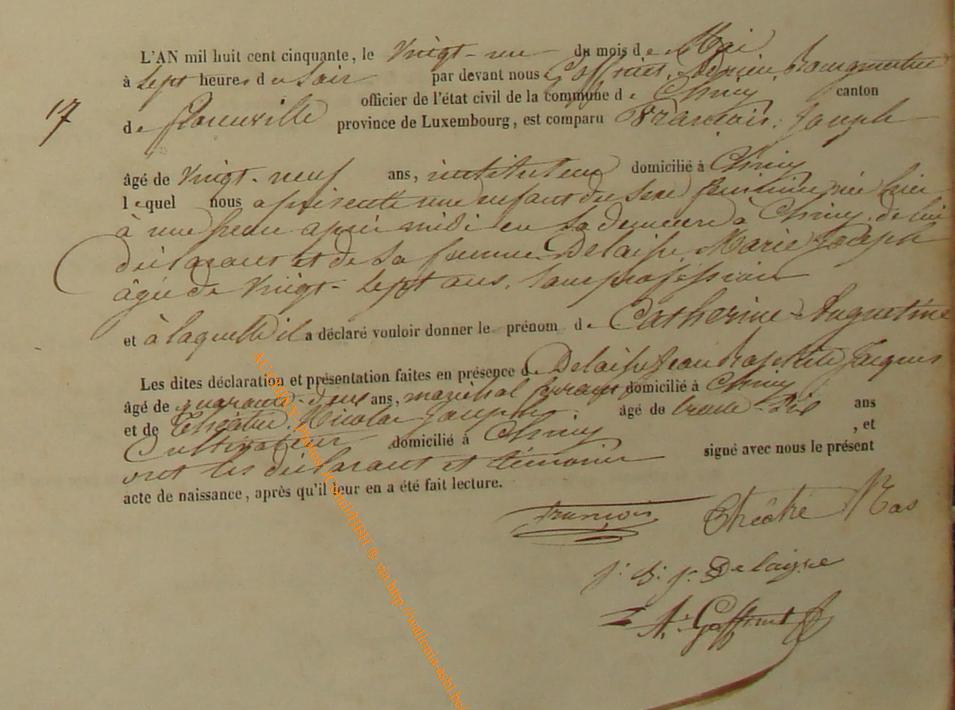 L'AN mil huit cent cinquante, le vingt-un du mois de Mai
à sept heures du soir par devant nous Goffinet, Adrien, Bourgmestre
17
officier de l'état civil de la commune de Chiny canton
de Florenville province de Luxembourg, est comparu François, Joseph
âgé de vingt-neuf ans, instituteur domicilié à Chiny
lequel nous a présenté une enfant du sexe féminin, née hier
à une heure après midi en sa demeure à Chiny, de lui
déclarant et de sa femme Delaisse, Marie Joseph
âgée de vingt-sept ans, sans profession
et à laquelle il a déclaré vouloir donner le prénom de Catherine-Augustine
Les dites déclaration et présentation faites en présence de Delaisse Jean Baptiste Jacques
âgé de quarante-deux ans, maréchal ferrant domicilié à Chiny
et de Théâtre, Nicolas Joseph âgé de trente-six ans
Cultivateur domicilié à Chiny, et
ont les déclarant et témoins signé avec nous le présent
acte de naissance, après qu'il leur en a été fait lecture.
François Théâtre Nas
J. B. J. Delaisse
A. Goffinet
http://wallonia-asbl.be